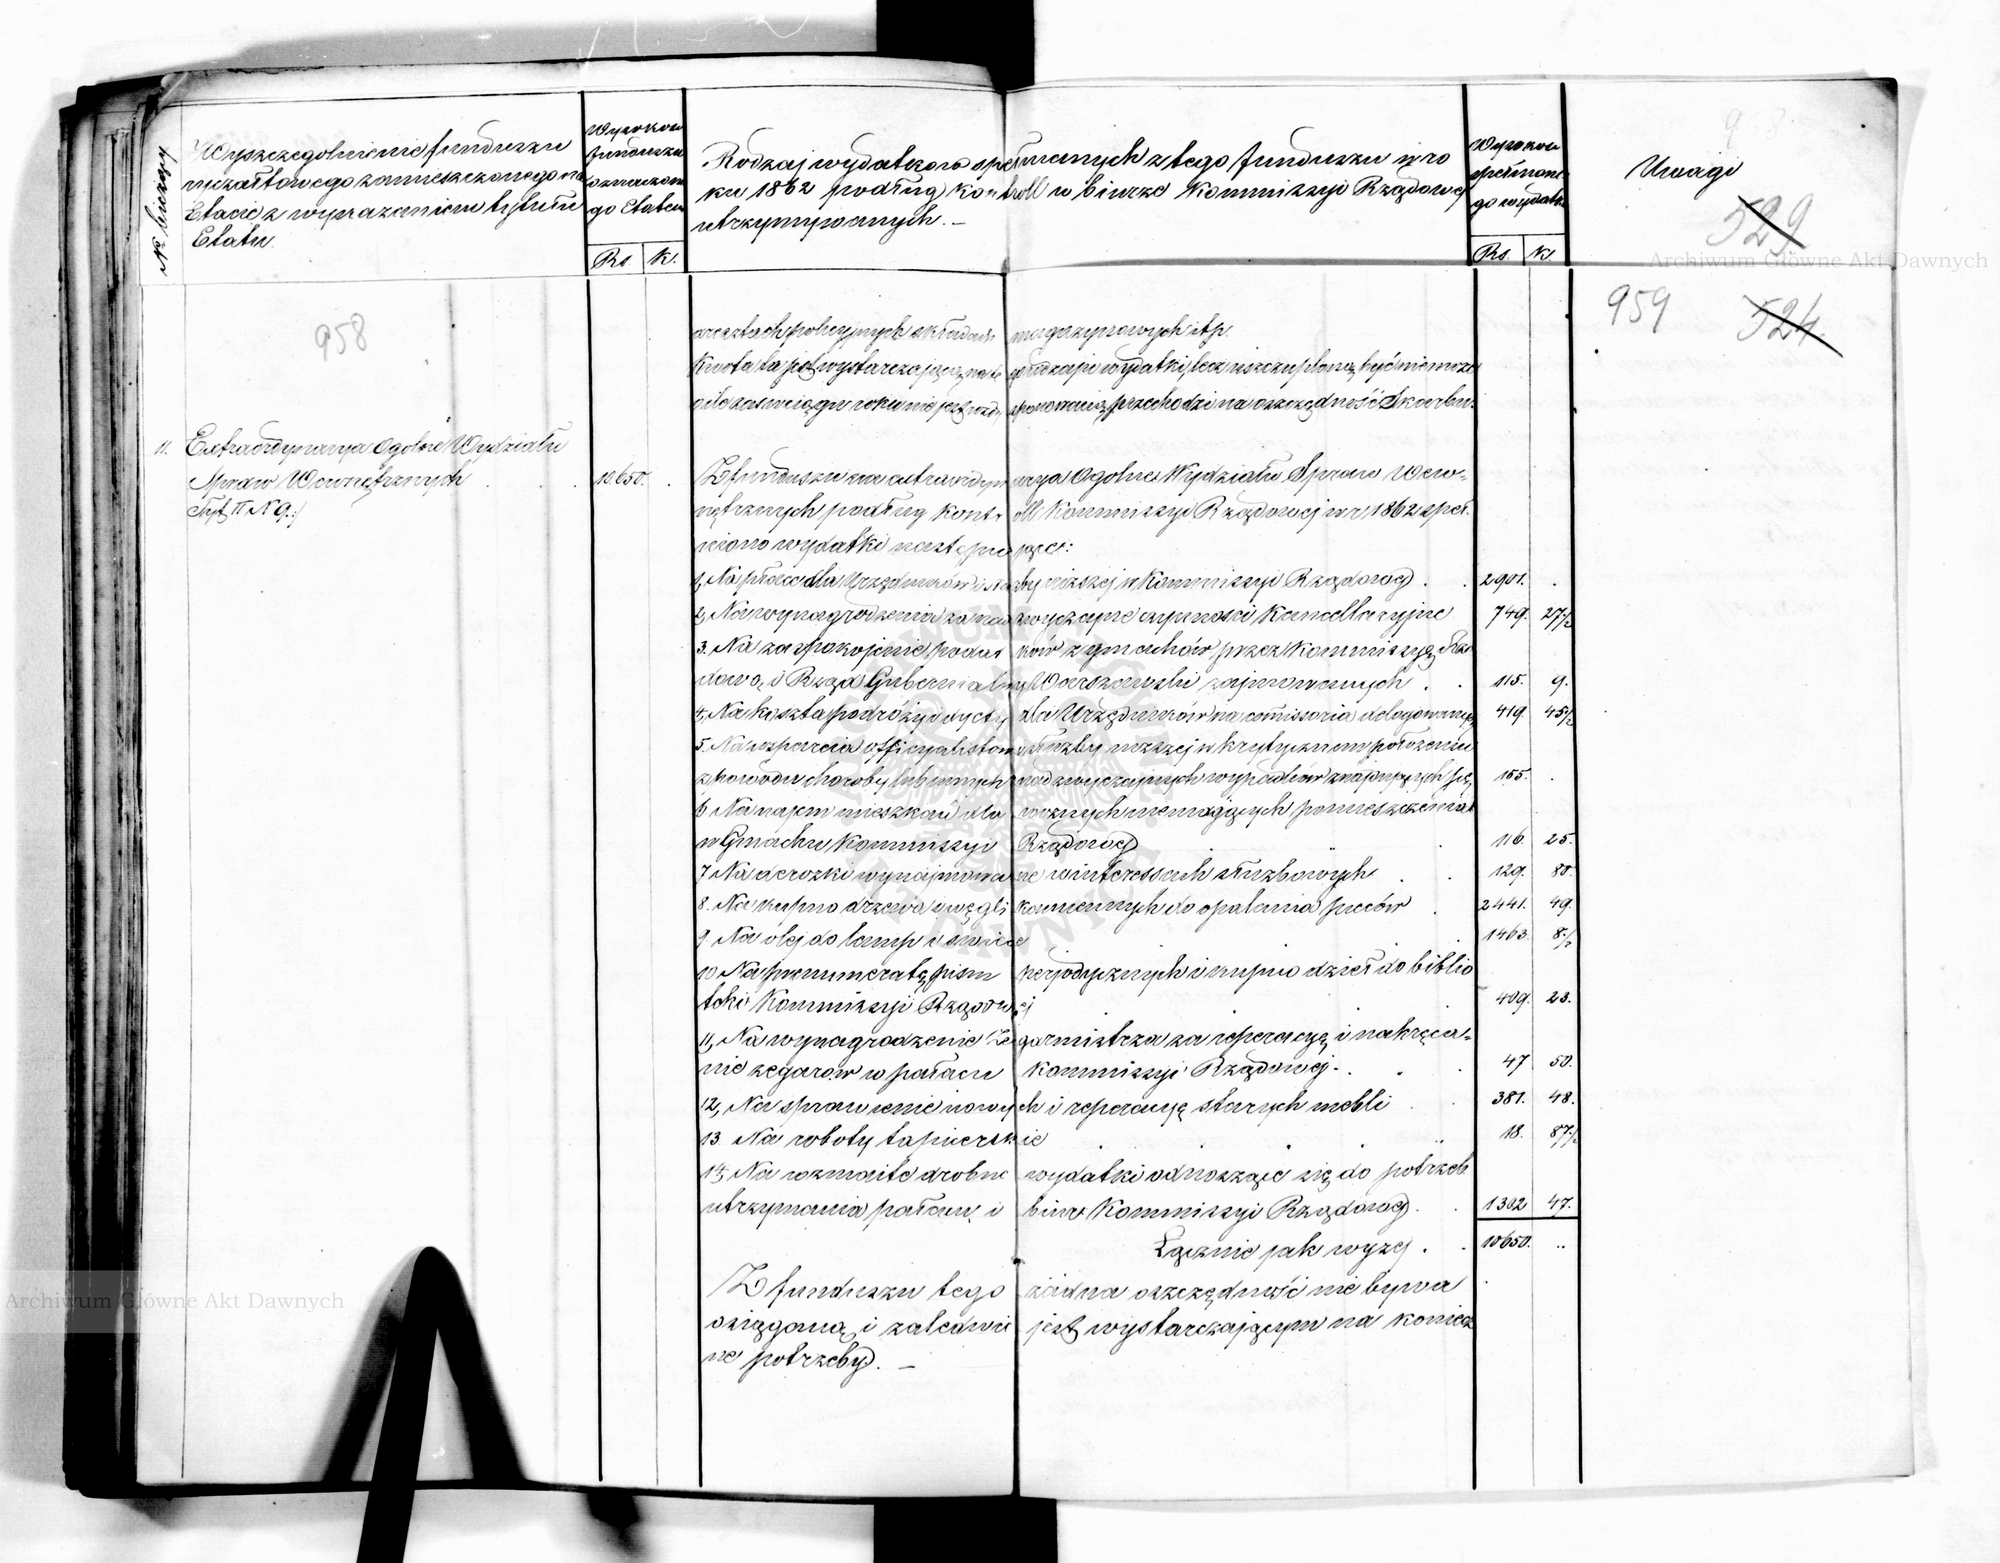 No bieżący
Wyszczegolnienie funduszu
ryczałtowego zamieszczonego na
Etacie z wyrażeniem tytułu
Etatu.
Wysokość
funduszu
oznaczone
go Etatem
Rs. k.
Rodzaj wydatków spełnionych z tego funduszu w ro
ku 1862 podług kontroll w biurze Kommissyi Rządowej
utrzymywanych. —
Wysokość
spełnione
go wydatku
Rs. k
Uwagi
529
958
959
524
aresztach policyjnych składach magazynowych itp.
Kwota ta jest wystarczającą na te rodzaje wydatki, lecz uszczuploną być niemoże
a ile zaś w ciągu roku nie jest rozdysponowaną, przechodzi na oszczędność Skarbu.
11. Extraordynarya Ogolne Wydziału
Spraw Wewnętrznych
Tyt. II N 9.
10.650. .
Z funduszu na extraordynarya Ogolne Wydziału Spraw Wew-
nętrznych podług kontroll Kommissyi Rządowej w r. 1862 speł
niono wydatki następujące:
1, Na płace dla Urzędników i służby niższej w Kommissyi Rządowej . . 2901. .
2, Na wynagrodzenia za nadzwyczajne czynności Kancellaryjne 749. 27½
3. Na zaspokojenie podatków z gmachów przez Kommissyą Rzą
dową i Rząd Gubernialny Warszawski zajmowanych . . 115. 9.
4, Na koszta podróży i dyety dla Urzędników na comissoria delegowanych 419. 45½
5. Na wsparcia officyalistom i służby niższej w krytycznem położeniu
z powodu choroby lub innych nadzwyczajnych wypadków znajdujących się 155. .
6 Na najem mieszkań dla woznych niemających pomieszczenia
w Gmachu Kommissyi Rządowej . 116. 25.
7 Na dorozki wynajmowane w interessach służbowych . . 129. 80.
8. Na kupno drzewa i węgli kamiennych do opalania pieców . 2441. 49.
9 Na olej do lamp i świece 1463. 8½
10 Na prenumeratę pism peryodycznych i kupno dzieł do biblio
teki Kommissyi Rządowej . . 409. 23.
11, Na wynagrodzenie Zegarmistrza za reperacyą i nakręca-
nie zegarów w pałacu Kommissyi Rządowej . . . 47 50.
12, Na sprawienie nowych i reperacyą starych mebli . . 381. 48.
13 Na roboty tapicerskie . . . 18. 87½
14, Na rozmaite drobne wydatki odnoszące się do potrzeb
utrzymania pałacu i biur Kommissyi Rządowej . . 1302 47.
Łącznie jak wyżej . . 10650. ..
Z funduszu tego żadna oszczędność nie bywa
osiąganą i zaledwie jest wystarczającym na koniecz
ne potrzeby. —
Archiwum Główne Akt Dawnych
Archiwum Główne Akt Dawnych